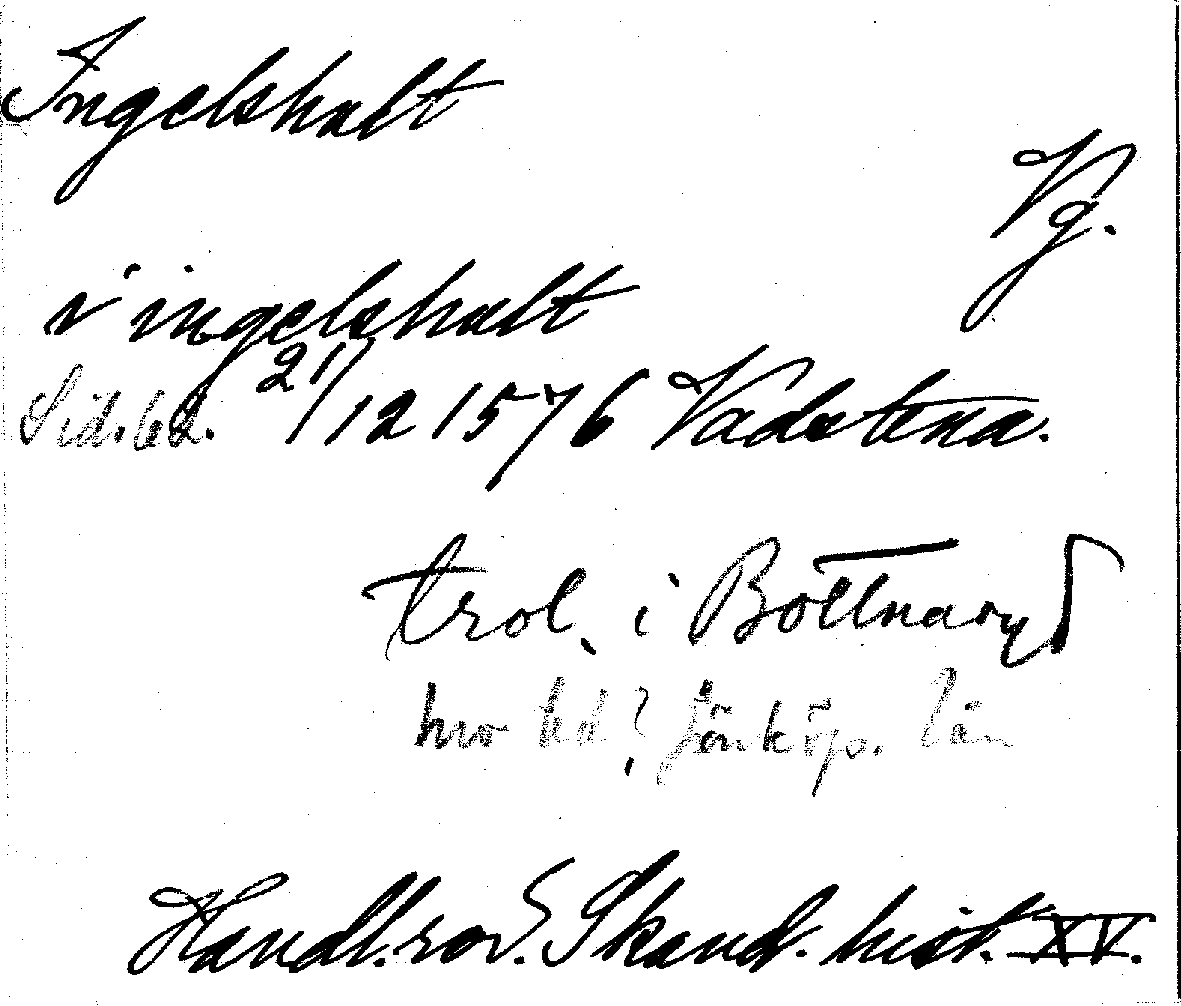 Ingelshult
Vg.
i ingelshult
Sid. 62. 21/12 1576 Vadstena.
trol. i Bottnaryd
hd? Jönköp. län
Handl. rör. Skand. hist. XV.